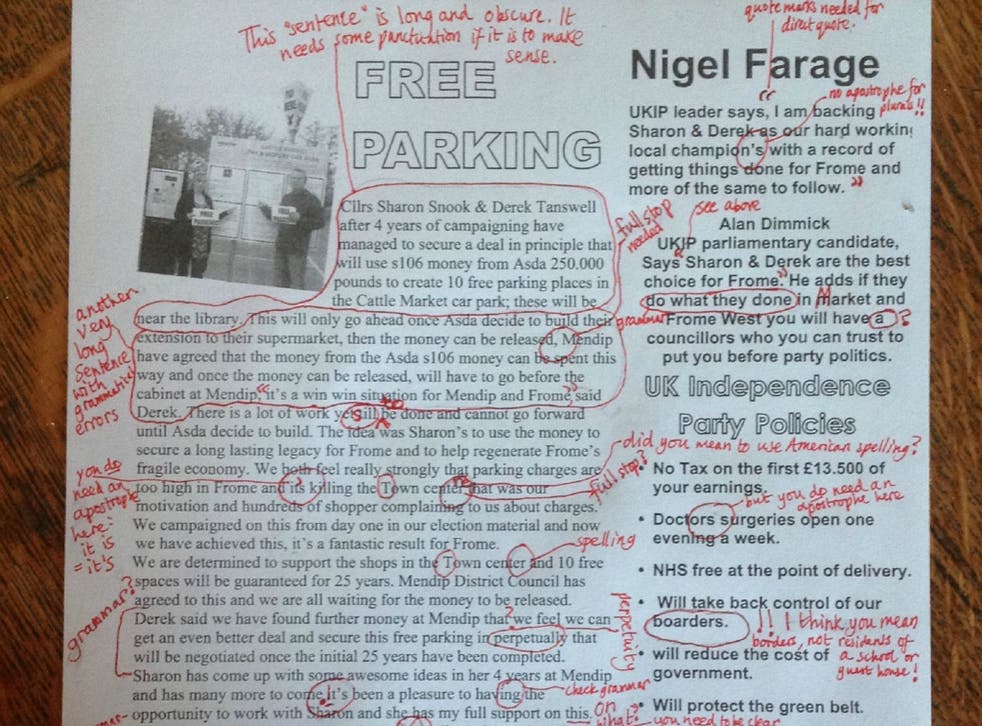 This "sentence" is long and obscure. It
needs some punctuation if it is to make
sense.
FREE
PARKING
FREE
PARKING
FREE
Cllrs Sharon Snook & Derek Tanswell
after 4 years of campaigning have
managed to secure a deal in principle that
will use s106 money from Asda 250.000
pounds to create 10 free parking places in
the Cattle Market car park; these will be
near the library. This will only go ahead once Asda decide to build their
extension to their supermarket, then the money can be released, Mendip
have agreed that the money from the Asda s106 money can be spent this
way and once the money can be released, will have to go before the
cabinet at Mendip. "it's a win win situation for Mendip and Frome," said
Derek. There is a lot of work yet still be done and cannot go forward
until Asda decide to build. The idea was Sharon's to use the money to
secure a long lasting legacy for Frome and to help regenerate Frome's
fragile economy. We both feel really strongly that parking charges are
too high in Frome and its killing the Town center that was our
motivation and hundreds of shopper complaining to us about charges.
We campaigned on this from day one in our election material and now
we have achieved this, it's a fantastic result for Frome.
We are determined to support the shops in the Town center and 10 free
spaces will be guaranteed for 25 years. Mendip District Council has
agreed to this and we are all waiting for the money to be released.
Derek said we have found further money at Mendip that we feel we can
get an even better deal and secure this free parking in perpetually that
will be negotiated once the initial 25 years have been completed.
Sharon has come up with some awesome ideas in her 4 years at Mendip
and has many more to come, it's been a pleasure to having the
opportunity to work with Sharon and she has my full support on this.
full stop
needed
grammar
another
very
long
sentence
with
grammatical
errors
to
s
you do
need an
apostrophe
here:
it is
= it's
?
full stop?
did you mean to use American spelling?
spelling
grammar?
?
perpetuity
check grammar
on
what?
you need to be clear
quote marks needed for
direct quote.
Nigel Farage
"
no apostrophe for
plurals!!
UKIP leader says, I am backing
Sharon & Derek as our hard working
local champion's with a record of
getting things done for Frome and
more of the same to follow. "
see above
Alan Dimmick
UKIP parliamentary candidate,
Says "Sharon & Derek are the best
choice for Frome." He adds if they
do what they done in Market and
M
Frome West you will have a
?
councillors who you can trust to
put you before party politics.
UK Independence
Party Policies
• No Tax on the first £13.500 of
your earnings.
but you do need an
apostrophe here
• Doctors surgeries open one
evening a week.
• NHS free at the point of delivery.
• Will take back control of our
boarders.
!! I think you mean
borders, not residents of
a school or
guest house!
• will reduce the cost of
government.
• Will protect the green belt.